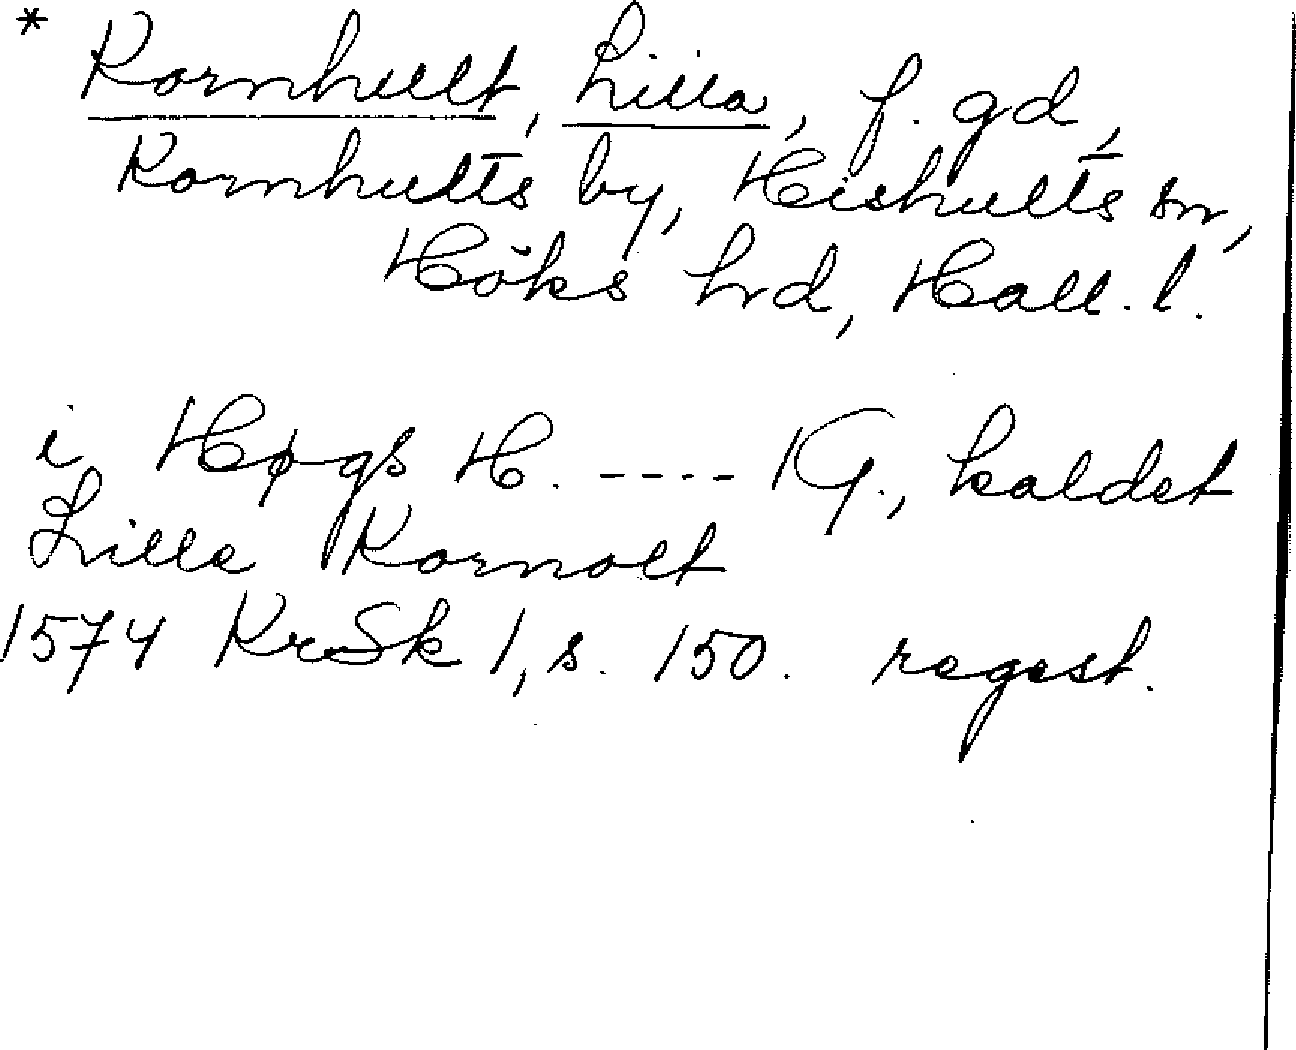 * Kornhult, Lilla, f. gd,
Kornhults by, Hishults sn,
Höks hrd, Hall. l.
i Høgs H. ---- 1 G., kaldet
Lille Kornolt
1574 KrSk 1, s. 150. regest.